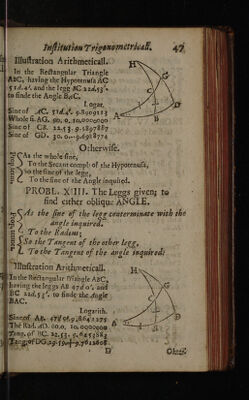 Institution Trigonometricall. 47
Illustration Arithmeticall.
In the Rectangular Triangle
ABC, having the Hypotenusa AC
51d.4'. and the legg BC 22d.53'.
to finde the Angle BAC.
Logar.
Sine of AC. 51d.4'. 9.8909113
Whole si. AG. 90. 0. 10.0000000
Sine of CB. 22.53. 9.5897887
Sine of GD. 30. 0. 9.6988774
Otherwise.
As the whole sine,
To the Secant compl: of the Hypotenusa,
So the sine of the legg,
To the sine of the Angle inquired.
PROBL. XIIII. The Leggs given; to
find either oblique ANGLE.
As the sine of the legg conterminate with the
angle inquired.
To the Radius;
So the Tangent of the other legg,
To the Tangent of the angle inquired:
Illustration Arithmeticall.
In the Rectangular Triangle ABC,
having the leggs AB 47d 0', and
BC 22d.53'. to finde the Angle
BAC.
Logarith.
Sine of AB. 47d 0'. 9.8641275
The Rad. AD. 90.0. 10.0000000
Tang. of BC. 22.53. 9.6253883
Tang. of DG.
D